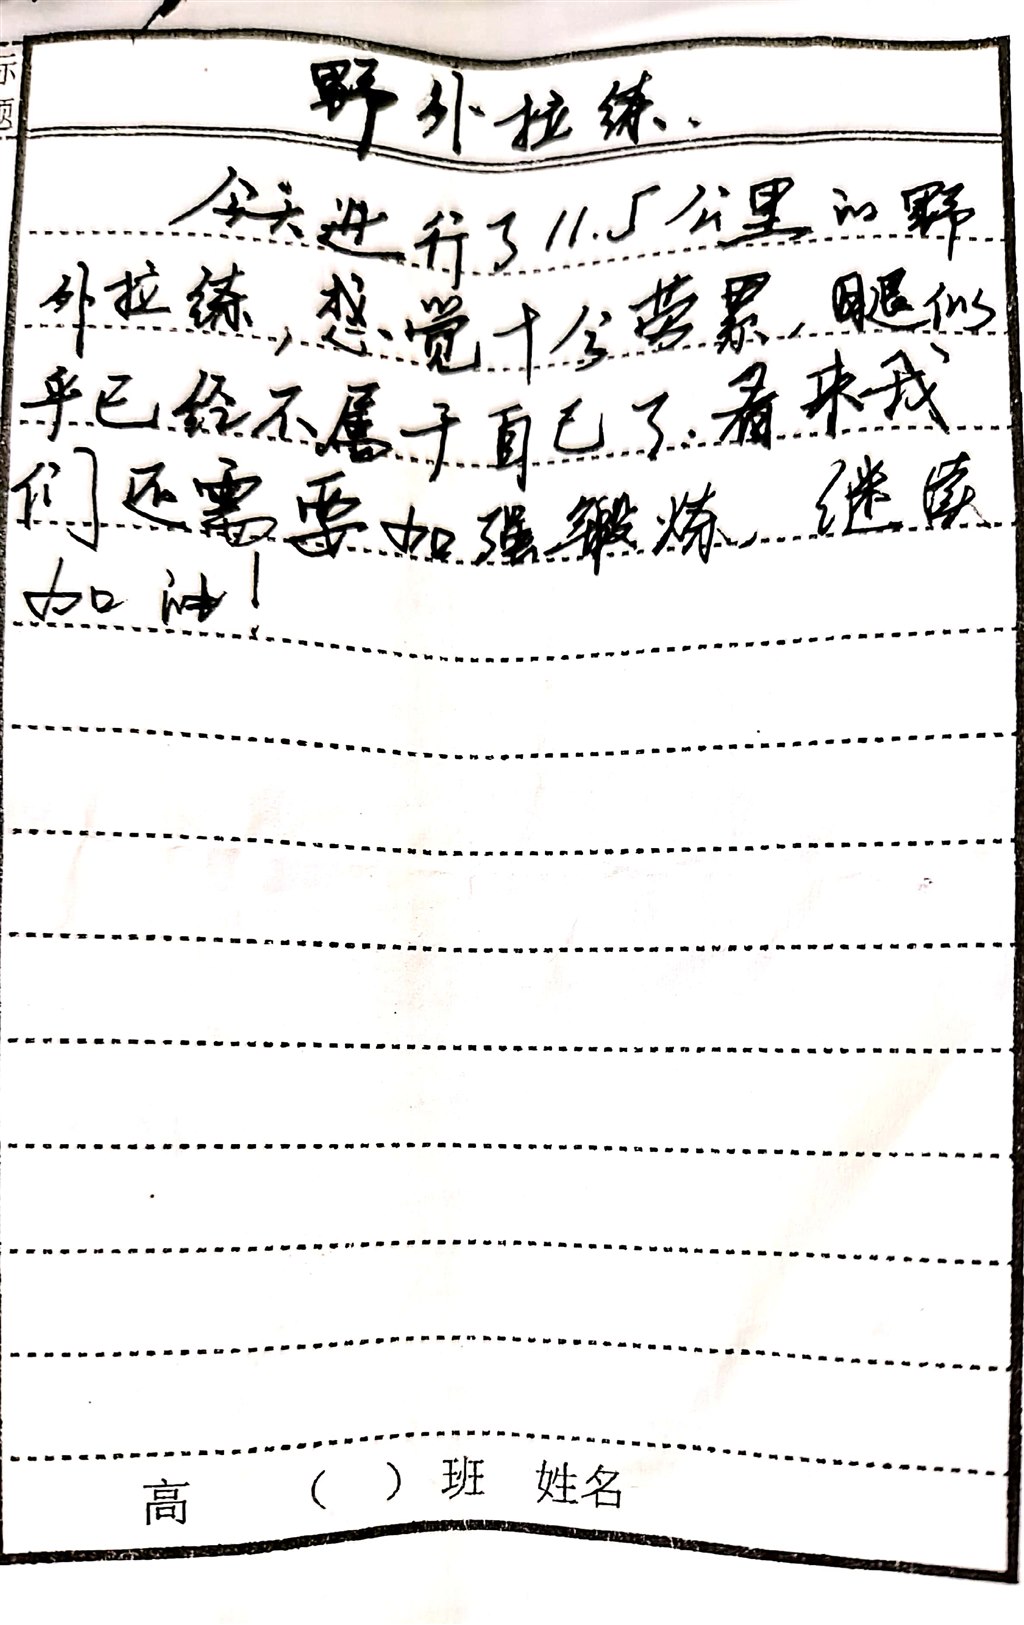 标题
野外拉练.
今天进行了11.5公里的野
外拉练,感觉十分劳累,腿似
乎已经不属于自己了.看来我
们还需要加强锻炼,继续
加油!
高 ( ) 班 姓名